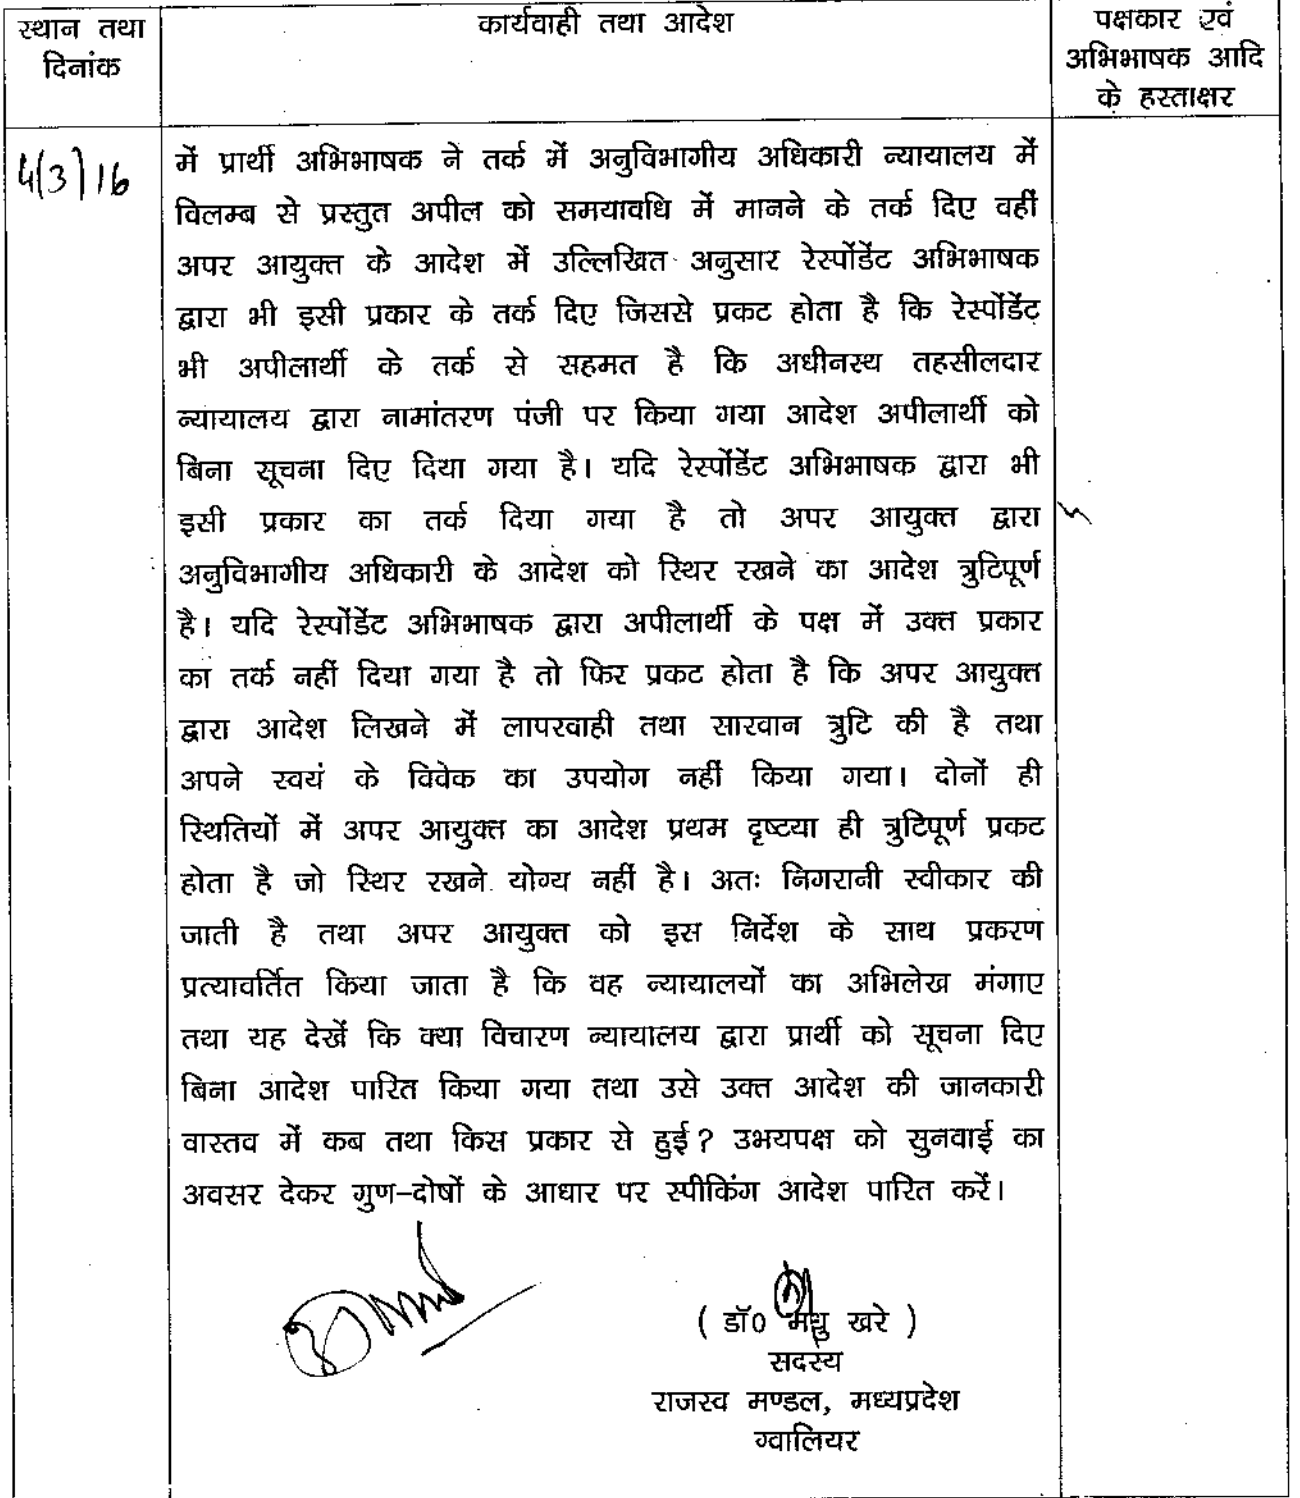 स्थान तथा
दिनांक
कार्यवाही तथा आदेश
पक्षकार एवं
अभिभाषक आदि
के हस्ताक्षर
4(3)16
में प्रार्थी अभिभाषक ने तर्क में अनुविभागीय अधिकारी न्यायालय में
विलम्ब से प्रस्तुत अपील को समयावधि में मानने के तर्क दिए वहीं
अपर आयुक्त के आदेश में उल्लिखित अनुसार रेस्पोंडेंट अभिभाषक
द्वारा भी इसी प्रकार के तर्क दिए जिससे प्रकट होता है कि रेस्पोंडेंट
भी अपीलार्थी के तर्क से सहमत है कि अधीनस्थ तहसीलदार
न्यायालय द्वारा नामांतरण पंजी पर किया गया आदेश अपीलार्थी को
बिना सूचना दिए दिया गया है। यदि रेस्पोंडेंट अभिभाषक द्वारा भी
इसी प्रकार का तर्क दिया गया है तो अपर आयुक्त द्वारा
अनुविभागीय अधिकारी के आदेश को स्थिर रखने का आदेश त्रुटिपूर्ण
है। यदि रेस्पोंडेंट अभिभाषक द्वारा अपीलार्थी के पक्ष में उक्त प्रकार
का तर्क नहीं दिया गया है तो फिर प्रकट होता है कि अपर आयुक्त
द्वारा आदेश लिखने में लापरवाही तथा सारवान त्रुटि की है तथा
अपने स्वयं के विवेक का उपयोग नहीं किया गया। दोनों ही
स्थितियों में अपर आयुक्त का आदेश प्रथम दृष्टया ही त्रुटिपूर्ण प्रकट
होता है जो स्थिर रखने योग्य नहीं है। अतः निगरानी स्वीकार की
जाती है तथा अपर आयुक्त को इस निर्देश के साथ प्रकरण
प्रत्यावर्तित किया जाता है कि वह न्यायालयों का अभिलेख मंगाए
तथा यह देखें कि क्या विचारण न्यायालय द्वारा प्रार्थी को सूचना दिए
बिना आदेश पारित किया गया तथा उसे उक्त आदेश की जानकारी
वास्तव में कब तथा किस प्रकार से हुई? उभयपक्ष को सुनवाई का
अवसर देकर गुण-दोषों के आधार पर स्पीकिंग आदेश पारित करें।
( डॉ0 मधु खरे )
सदस्य
राजस्व मण्डल, मध्यप्रदेश
ग्वालियर